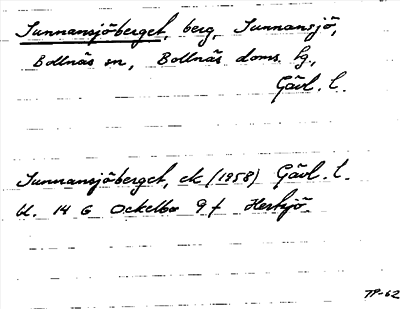 Sunnansjöberget, berg, Sunnansjö,
Bollnäs sn, Bollnäs doms. tg.,
Gävl. l.
Sunnansjöberget, ek (1958) Gävl. l.
bl. 14 G Ockelbo 9 f Hertsjö.
TP-62